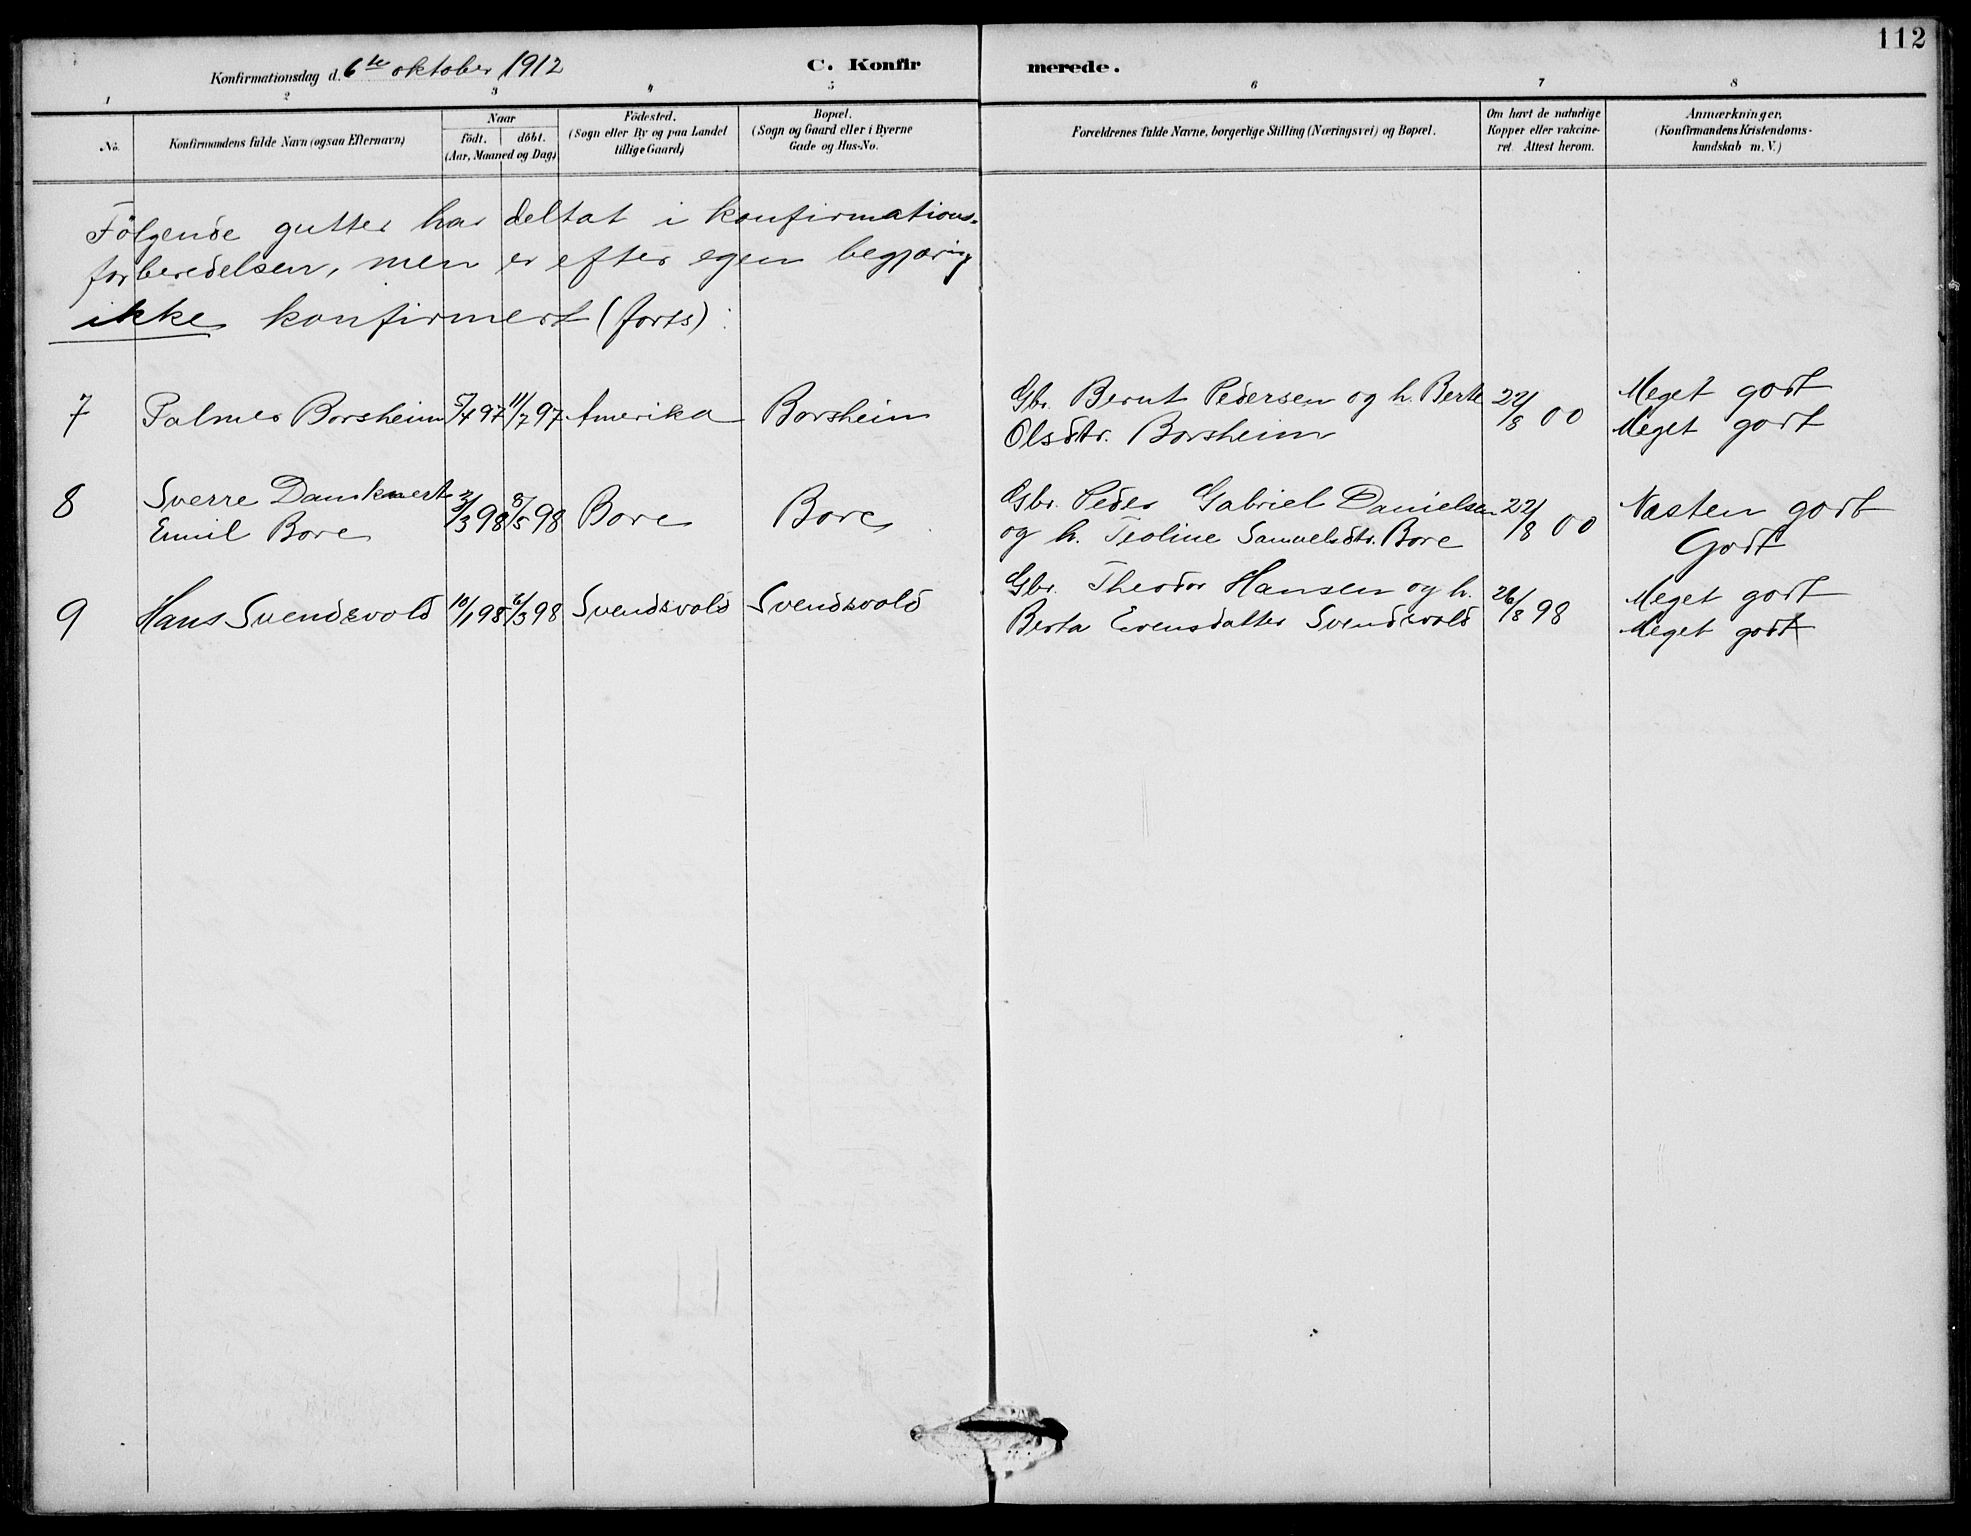 112
Konfirmationsdag d. 6te oktober 1912
C. Konfirmerede.
1 2 3 4 5 6 7 8
No.
Konfirmandens fulde Navn (ogsaa Efternavn)
Naar
födt. döbt.
(Aar, Maaned og Dag)
Födested.
(Sogn eller By og paa Landet
tillige Gaard)
Bopæl.
(Sogn og Gaard eller i Byerne
Gade og Hus-No.
Forældrenes fulde Navne, borgerlige Stilling (Næringsvei) og Bopæl.
Om havt de naturlige
Kopper eller vakcine-
ret. Attest herom.
Anmærkninger,
(Konfirmandens Kristendoms-
kundskab m. V.)
Følgende gutter har deltat i konfirmations-
forberedelsen, men er efter egen begjæring
ikke konfirmert (forts):
7 Palmer Borsheim 5/4 97 11/7 97 Amerika Borsheim Gbr. Bernt Pedersen og h. Berte 22/8 00 Meget godt
Olsdtr. Borsheim Meget godt
8 Sverre Dankvert 2/3 98 8/5 98 Bore Bore Gbr. Peder Gabriel Danielsen 22/8 00 Næsten godt
Emil Bore og h. Teoline Samuelsdtr. Bore Godt
9 Hans Svendsvold 10/1 98 6/3 98 Svendsvold Svendsvold Gbr. Theodor Hansen og h. 26/8 98 Meget godt
Berta Evensdatter Svendsvold Meget godt